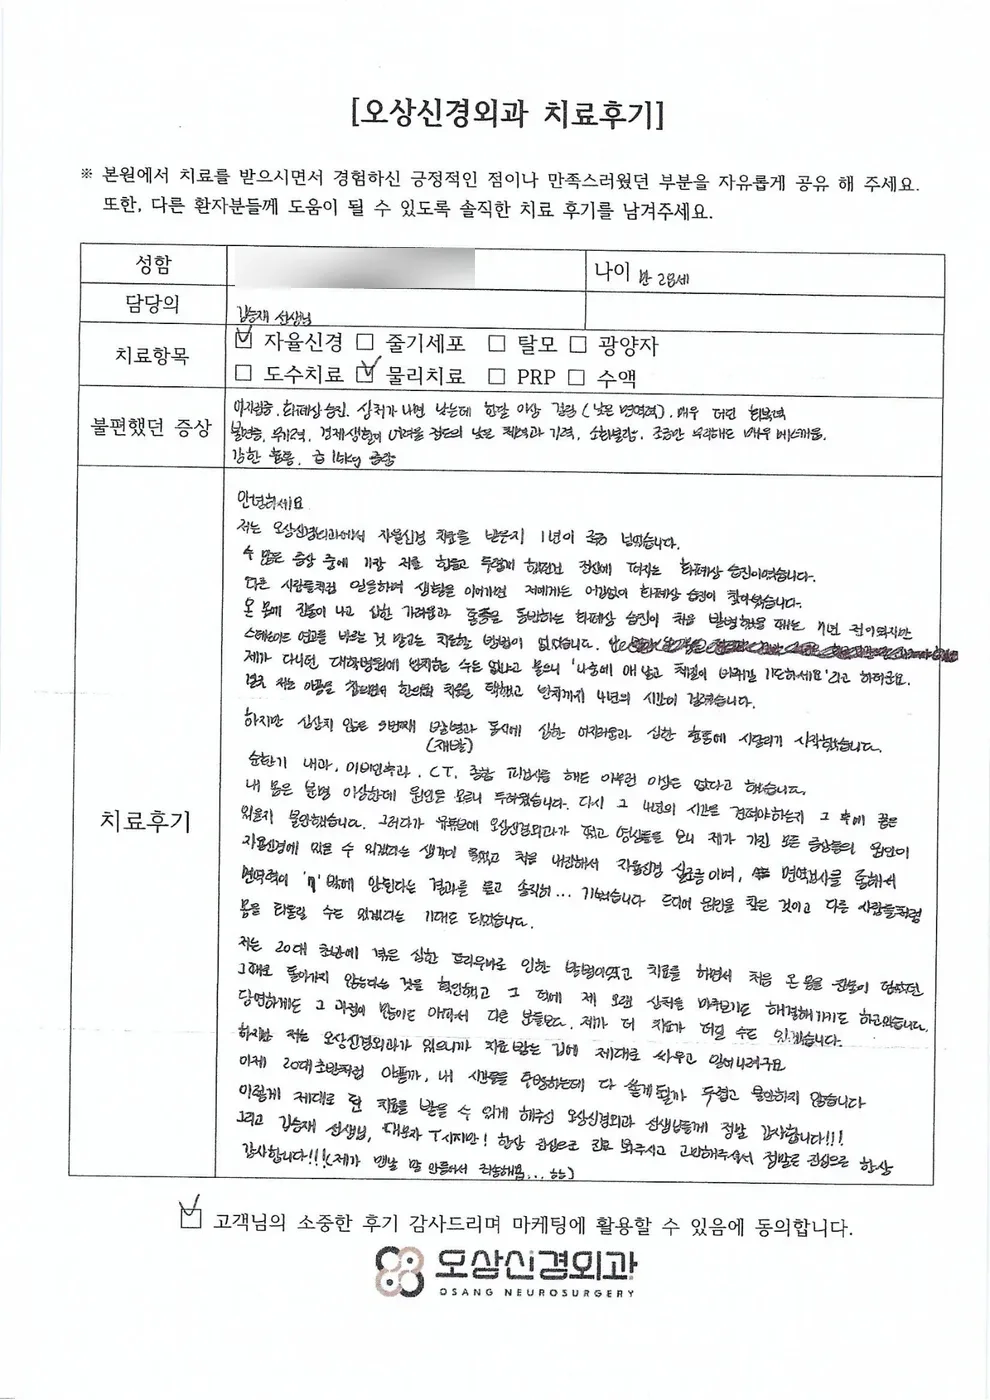 [오상신경외과 치료후기]
※ 본원에서 치료를 받으시면서 경험하신 긍정적인 점이나 만족스러웠던 부분을 자유롭게 공유 해 주세요.
또한, 다른 환자분들께 도움이 될 수 있도록 솔직한 치료 후기를 남겨주세요.
성함
나이 만 28세
담당의 김승재 선생님
치료항목
☑ 자율신경 ☐ 줄기세포 ☐ 탈모 ☐ 광양자
☐ 도수치료 ☑ 물리치료 ☐ PRP ☐ 수액
불편했던 증상
어지럼증, 화폐상 습진, 상처가 나면 낫는데 한달 이상 걸림 (낮은 면역력), 매우 더딘 회복력
불면증, 무기력, 경제생활이 어려울 정도의 낮은 체력과 기력, 소화불량, 조금만 무리해도 매우 메스꺼움,
강한 흉통, 급 15kg 증량
치료후기
안녕하세요
저는 오상신경외과에서 자율신경 치료를 받은지 1년이 조금 넘었습니다.
수 많은 증상 중에 가장 저를 힘들고 두렵게 했던건 전신에 퍼지는 화폐상 습진이었습니다.
다른 사람들처럼 일을하며 생활을 이어가면 저에게는 어김없이 화폐상 습진이 찾아왔습니다.
온 몸에 진물이 나고 심한 가려움과 통증을 동반하는 화폐상 습진이 처음 발병했을 때는 7년 전이었지만
스테로이드 연고를 바르는 것 말고는 치료할 방법이 없었습니다.
제가 다니던 대학병원에 완치하는 수는 없냐고 물으니 '나중에 애 낳고 체질이 바뀌길 기도하세요'라고 하더군요.
결국 저는 아픔을 참으면서 한의원 치료를 택했고 완치까지 4년의 시간이 걸렸습니다.
하지만 심상치 않은 2번째 발병과 동시에 심한 어지러움과 심한 흉통에 시달리기 시작했습니다.
(재발)
순환기 내과, 이비인후과, CT, 종합 피검사를 해도 아무런 이상은 없다고 했습니다.
내 몸은 분명 이상한데 원인을 모르니 두려웠습니다. 다시 그 4년의 시간을 견뎌야하는지 그 후에 끝은
있을지 불안했습니다. 그러다가 유튜브에 오상신경외과가 떴고 영상들을 보니 제가 가진 모든 증상들의 원인이
자율신경에 있을 수 있겠다는 생각이 들었고 처음 내원해서 자율신경 실조증이며, 면역검사를 통해서
면역력이 '7' 밖에 안된다는 결과를 듣고 솔직히... 기뻤습니다 드디어 원인을 찾은 것이고 다른 사람들처럼
몸을 되돌릴 수도 있겠다는 기대도 되었습니다.
저는 20대 초반에 겪은 심한 트라우마로 인한 발병이었고 치료를 하면서 처음 온 몸을 진물이 덮었던
그때로 돌아가지 않는다는 것을 확인했고 그 덕에 제 오랜 상처를 마주보기도 해결해가기도 하고있습니다.
당연하게도 그 과정이 많이도 아파서 다른 분들보다. 제가 더 치료가 더딜 수도 있겠습니다.
하지만 저는 오상신경외과가 있으니까 치료 받는 김에 제대로 싸우고 일어나려구요
이제 20대초반처럼 아플까, 내 시간들을 투병하는데 다 쓰게될까 두렵고 불안하지 않습니다
이렇게 제대로 된 치료를 받을 수 있게 해주신 오상신경외과 선생님들께 정말 감사합니다!!!
그리고 김승재 선생님, 대문자 T시지만! 항상 관심으로 진료 봐주시고 고민해주셔서 정말로 진심으로 항상
감사합니다!!! (제가 맨날 말 안들어서 죄송해욤... ㅎㅎ)
☑ 고객님의 소중한 후기 감사드리며 마케팅에 활용할 수 있음에 동의합니다.
오상신경외과
OSANG NEUROSURGERY